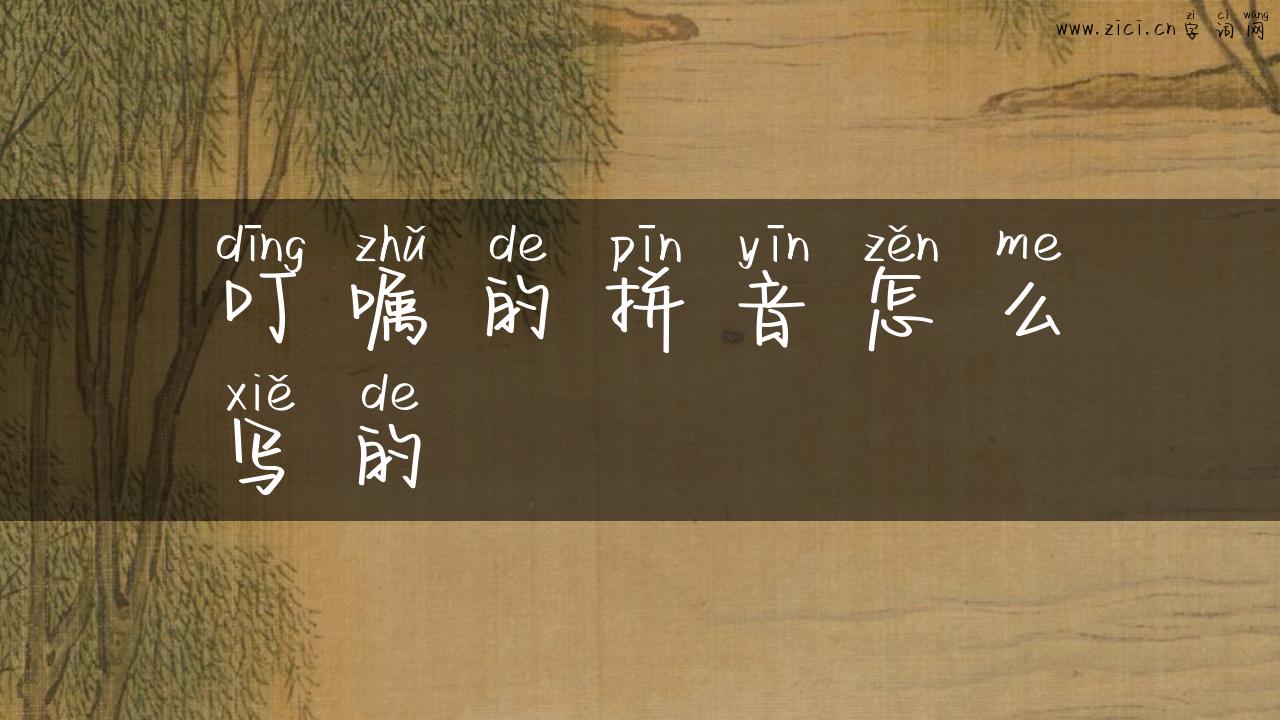 zì cí wǎng
www.zici.cn字词网
dīng zhǔ de pīn yīn zěn me
叮嘱的拼音怎么
xiě de
写的